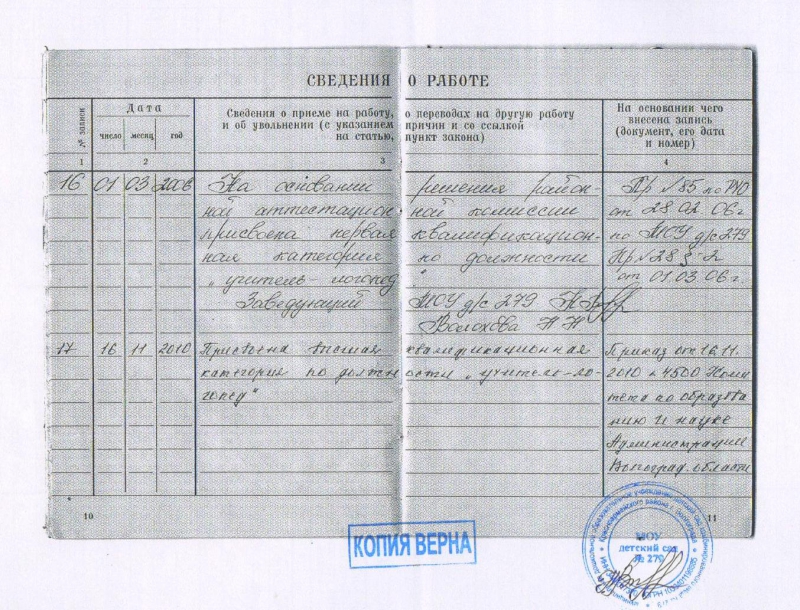 СВЕДЕНИЯ О РАБОТЕ
№ записи
Дата
число месяц год
Сведения о приеме на работу, о переводах на другую работу
и об увольнении (с указанием причин и со ссылкой
на статью, пункт закона)
На основании чего
внесена запись
(документ, его дата
и номер)
1 2 3 4
16 01 03 2006 На основании решения район- Пр №85 по РУО
ной аттестацион ной комиссии от 28.02.06г
присвоена первая квалификацион- по МОУ д/с 279
ная категория по должности Пр №28 § 2
„учитель-логопед" от 01.03 06г.
Заведующий МОУ д/с 279
Волохова Н Н
17 16 11 2010 Присвоена высшая квалификационная Приказ от 16.11.
категория по должности „учитель-ло- 2010 № 4500 Коми
гопед" тета по образова
нию и науке
Администрации
Волгоград. области
10 11
КОПИЯ ВЕРНА
МОУ
детский сад
№ 279